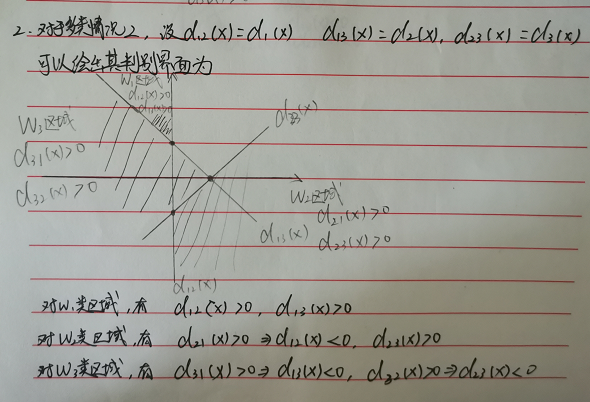 2. 对于多类情况2, 设 d₁₂(x)=d₁(x) d₁₃(x)=d₂(x), d₂₃(x)=d₃(x)
可以绘出其判别界面为
W₁区域
d₁₂(x)>0
d₁₃(x)>0
d₂₃(x)
W₃区域
d₃₁(x)>0
d₃₂(x)>0
W₂区域
d₂₁(x)>0
d₂₃(x)>0
d₁₃(x)
d₁₂(x)
对W₁类区域, 有 d₁₂(x)>0, d₁₃(x)>0
对W₂类区域, 有 d₂₁(x)>0⇒d₁₂(x)<0, d₂₃(x)>0
对W₃类区域, 有 d₃₁(x)>0⇒d₁₃(x)<0, d₃₂(x)>0⇒d₂₃(x)<0